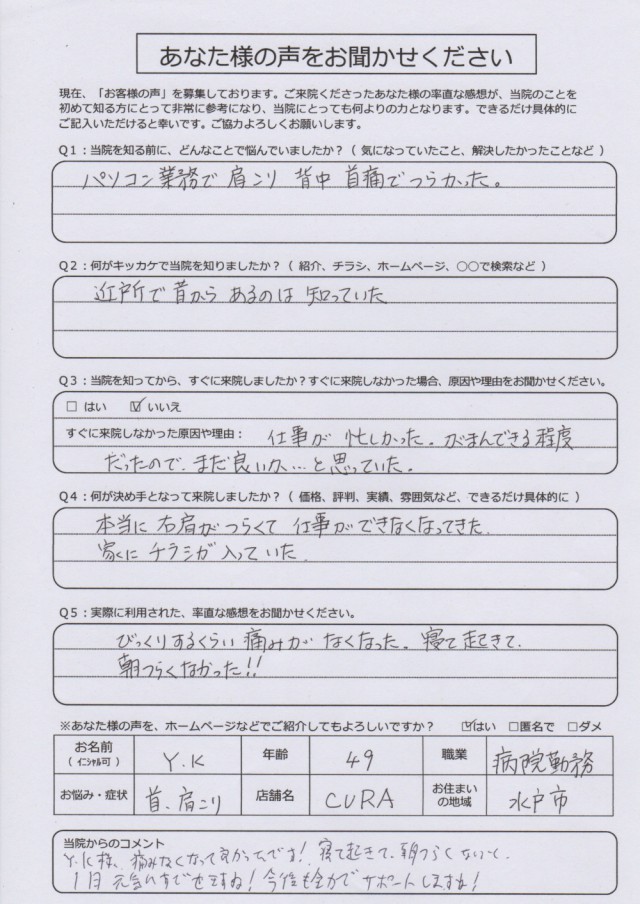 あなた様の声をお聞かせください
現在、「お客様の声」を募集しております。ご来院くださったあなた様の率直な感想が、当院のことを
初めて知る方にとって非常に参考になり、当院にとっても何よりの力となります。できるだけ具体的に
ご記入いただけると幸いです。ご協力よろしくお願いします。
Q1：当院を知る前に、どんなことで悩んでいましたか？（ 気になっていたこと、解決したかったことなど ）
パソコン業務で 肩こり 背中 首痛で つらかった。
Q2：何がキッカケで当院を知りましたか？（ 紹介、チラシ、ホームページ、○○で検索など ）
近戸所で 昔から あるのは 知っていた
Q3：当院を知ってから、すぐに来院しましたか？すぐに来院しなかった場合、原因や理由をお聞かせください。
□ はい ☑ いいえ
すぐに来院しなかった原因や理由： 仕事が 忙しかった。がまんできる程度
だったので、まだ良いか…と思っていた。
Q4：何が決め手となって来院しましたか？（ 価格、評判、実績、雰囲気など、できるだけ具体的に ）
本当に 右肩がつらくて 仕事ができなくなってきた。
家に チラシが 入っていた
Q5：実際に利用された、率直な感想をお聞かせください。
びっくりするくらい 痛みが なくなった。寝て起きて、
朝つらくなかった!!
※あなた様の声を、ホームページなどでご紹介してもよろしいですか？ ☑はい □匿名で □ダメ
お名前（ｲﾆｼｬﾙ可） Y.K 年齢 49 職業 病院勤務
お悩み・症状 首、肩こり 店舗名 CURA お住まいの地域 水戸市
当院からのコメント
Y.K様、痛みなくなって良かったです! 寝て起きて、朝つらくないと、
1日 元気にすごせますね! 今後も全力で サポートしますね!